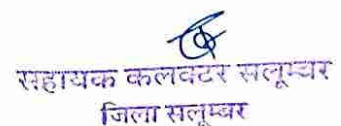 सहायक कलक्टर सलूम्बर
जिला सलूम्बर